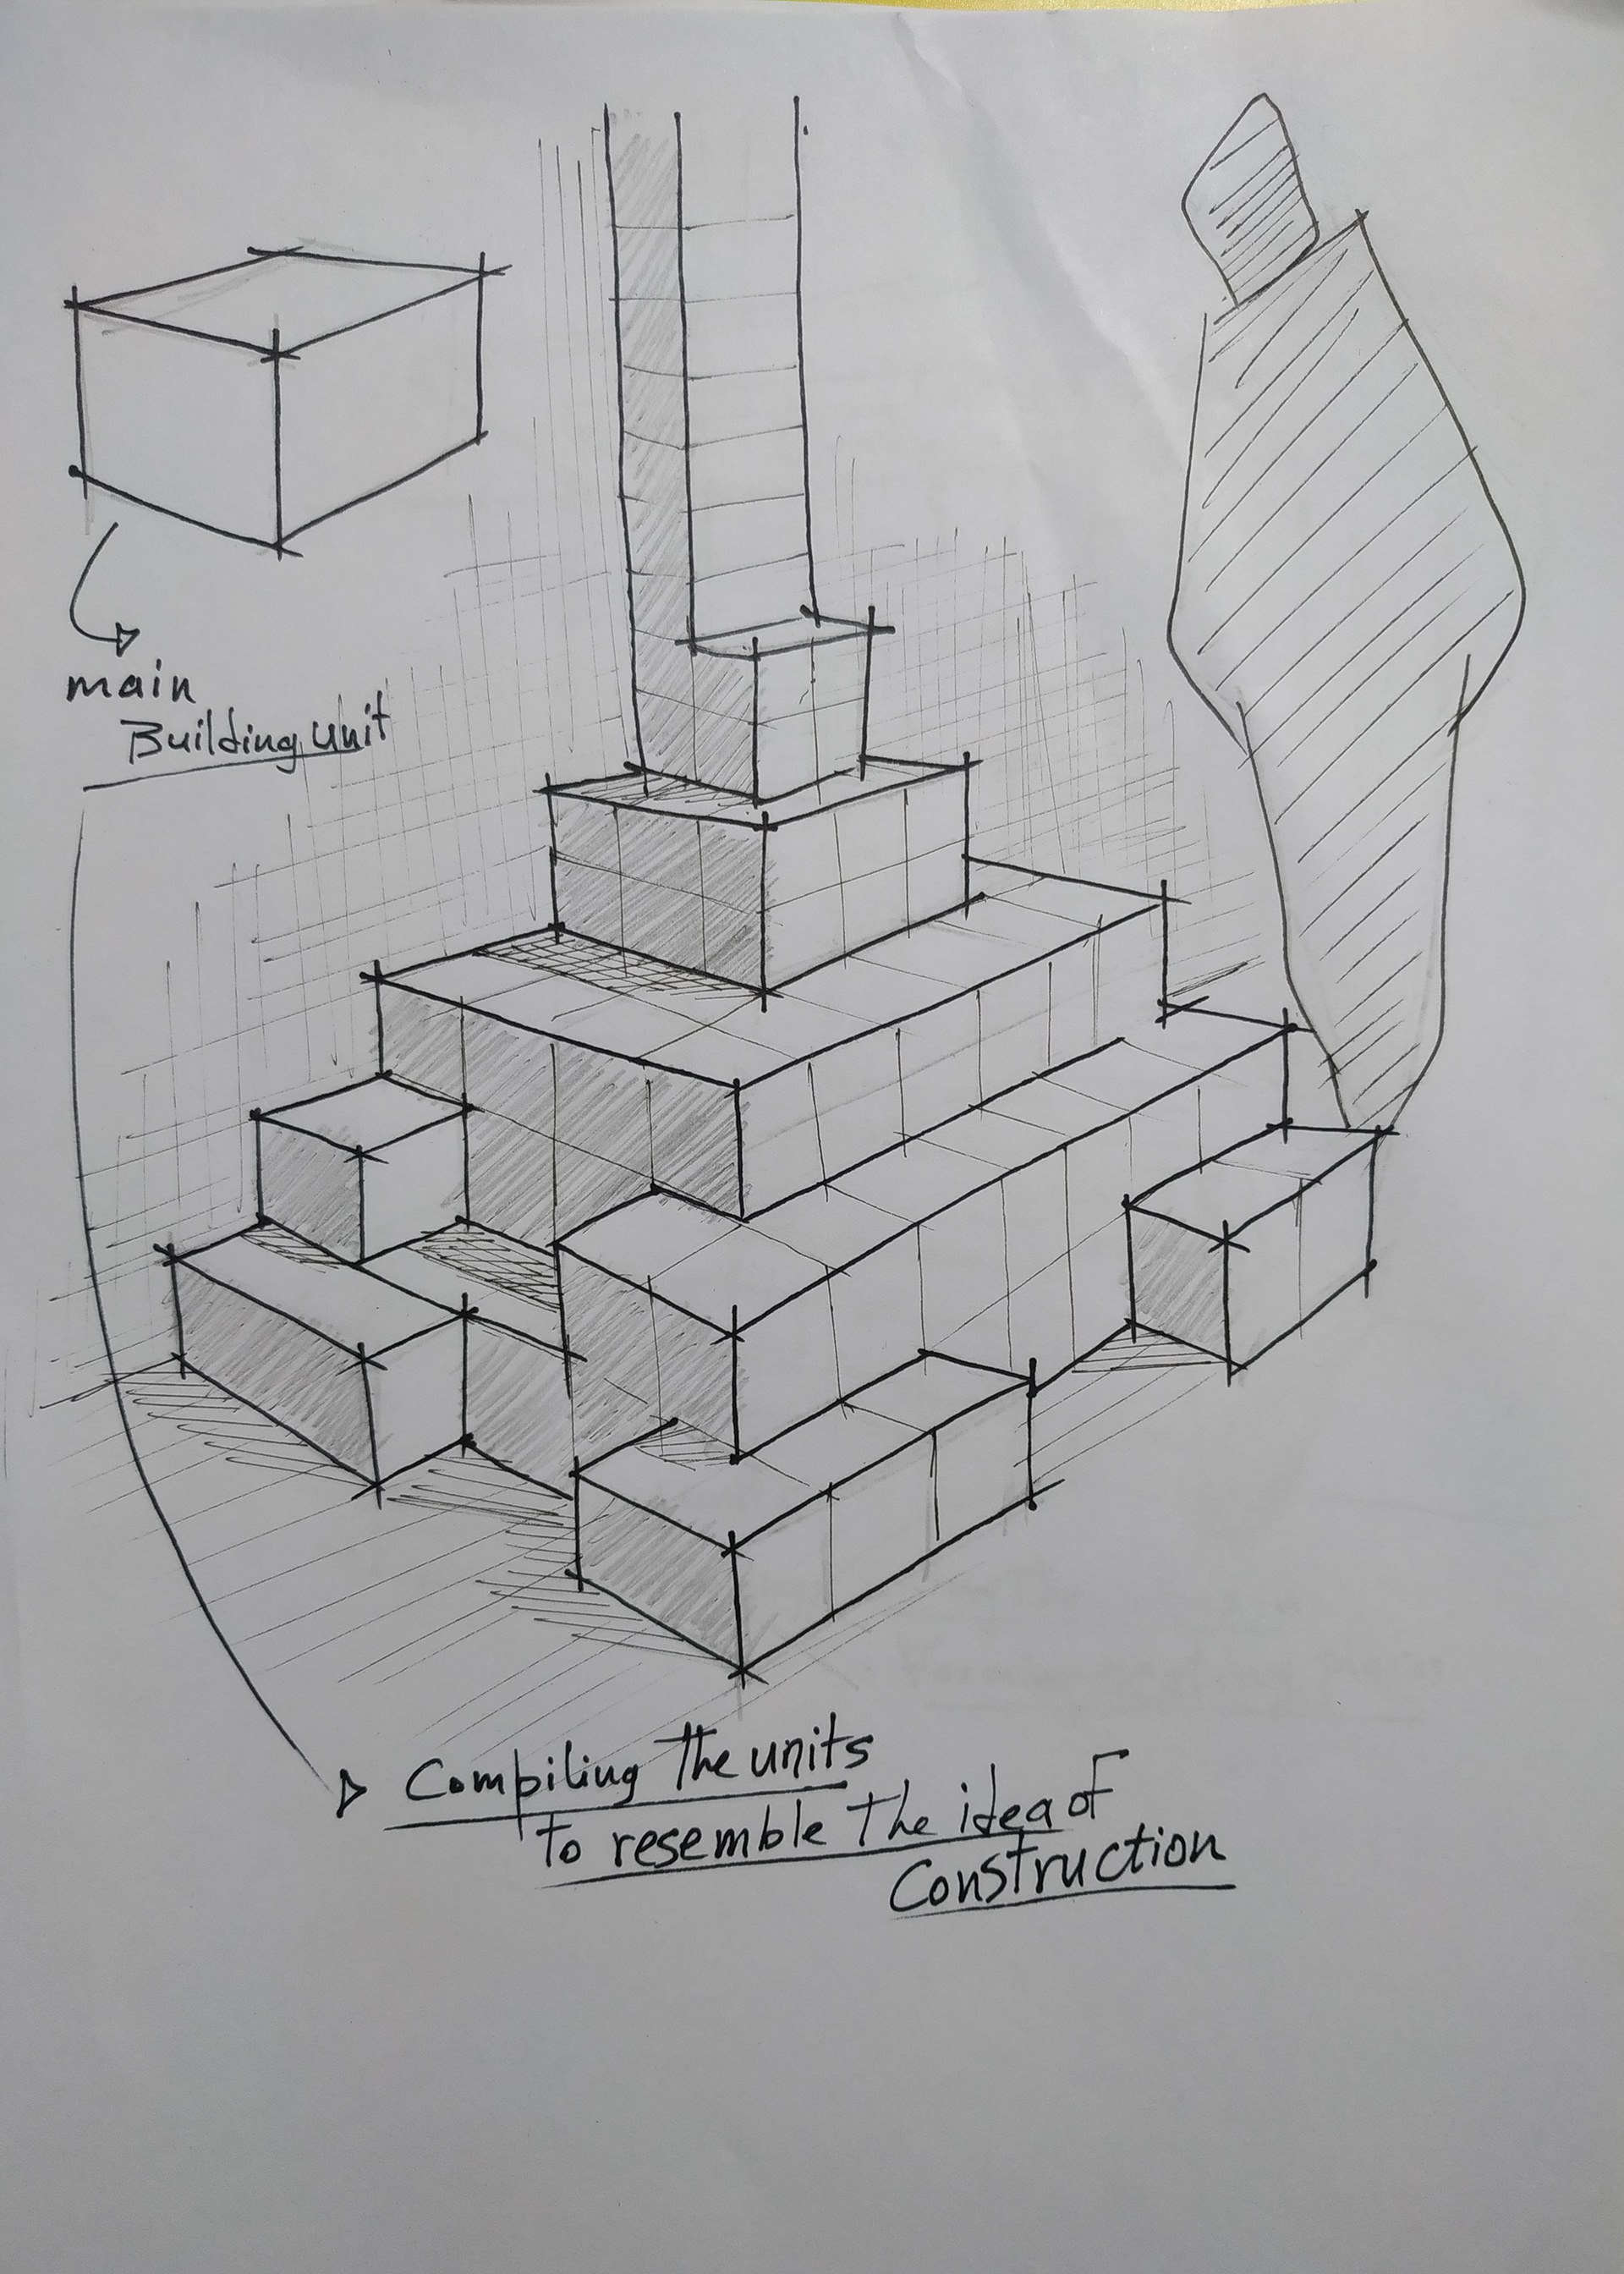 main
Building unit
Compiling The units
To resemble The idea of
Construction